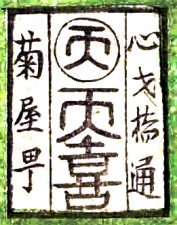 心才橋通
天
天喜
菊屋甼